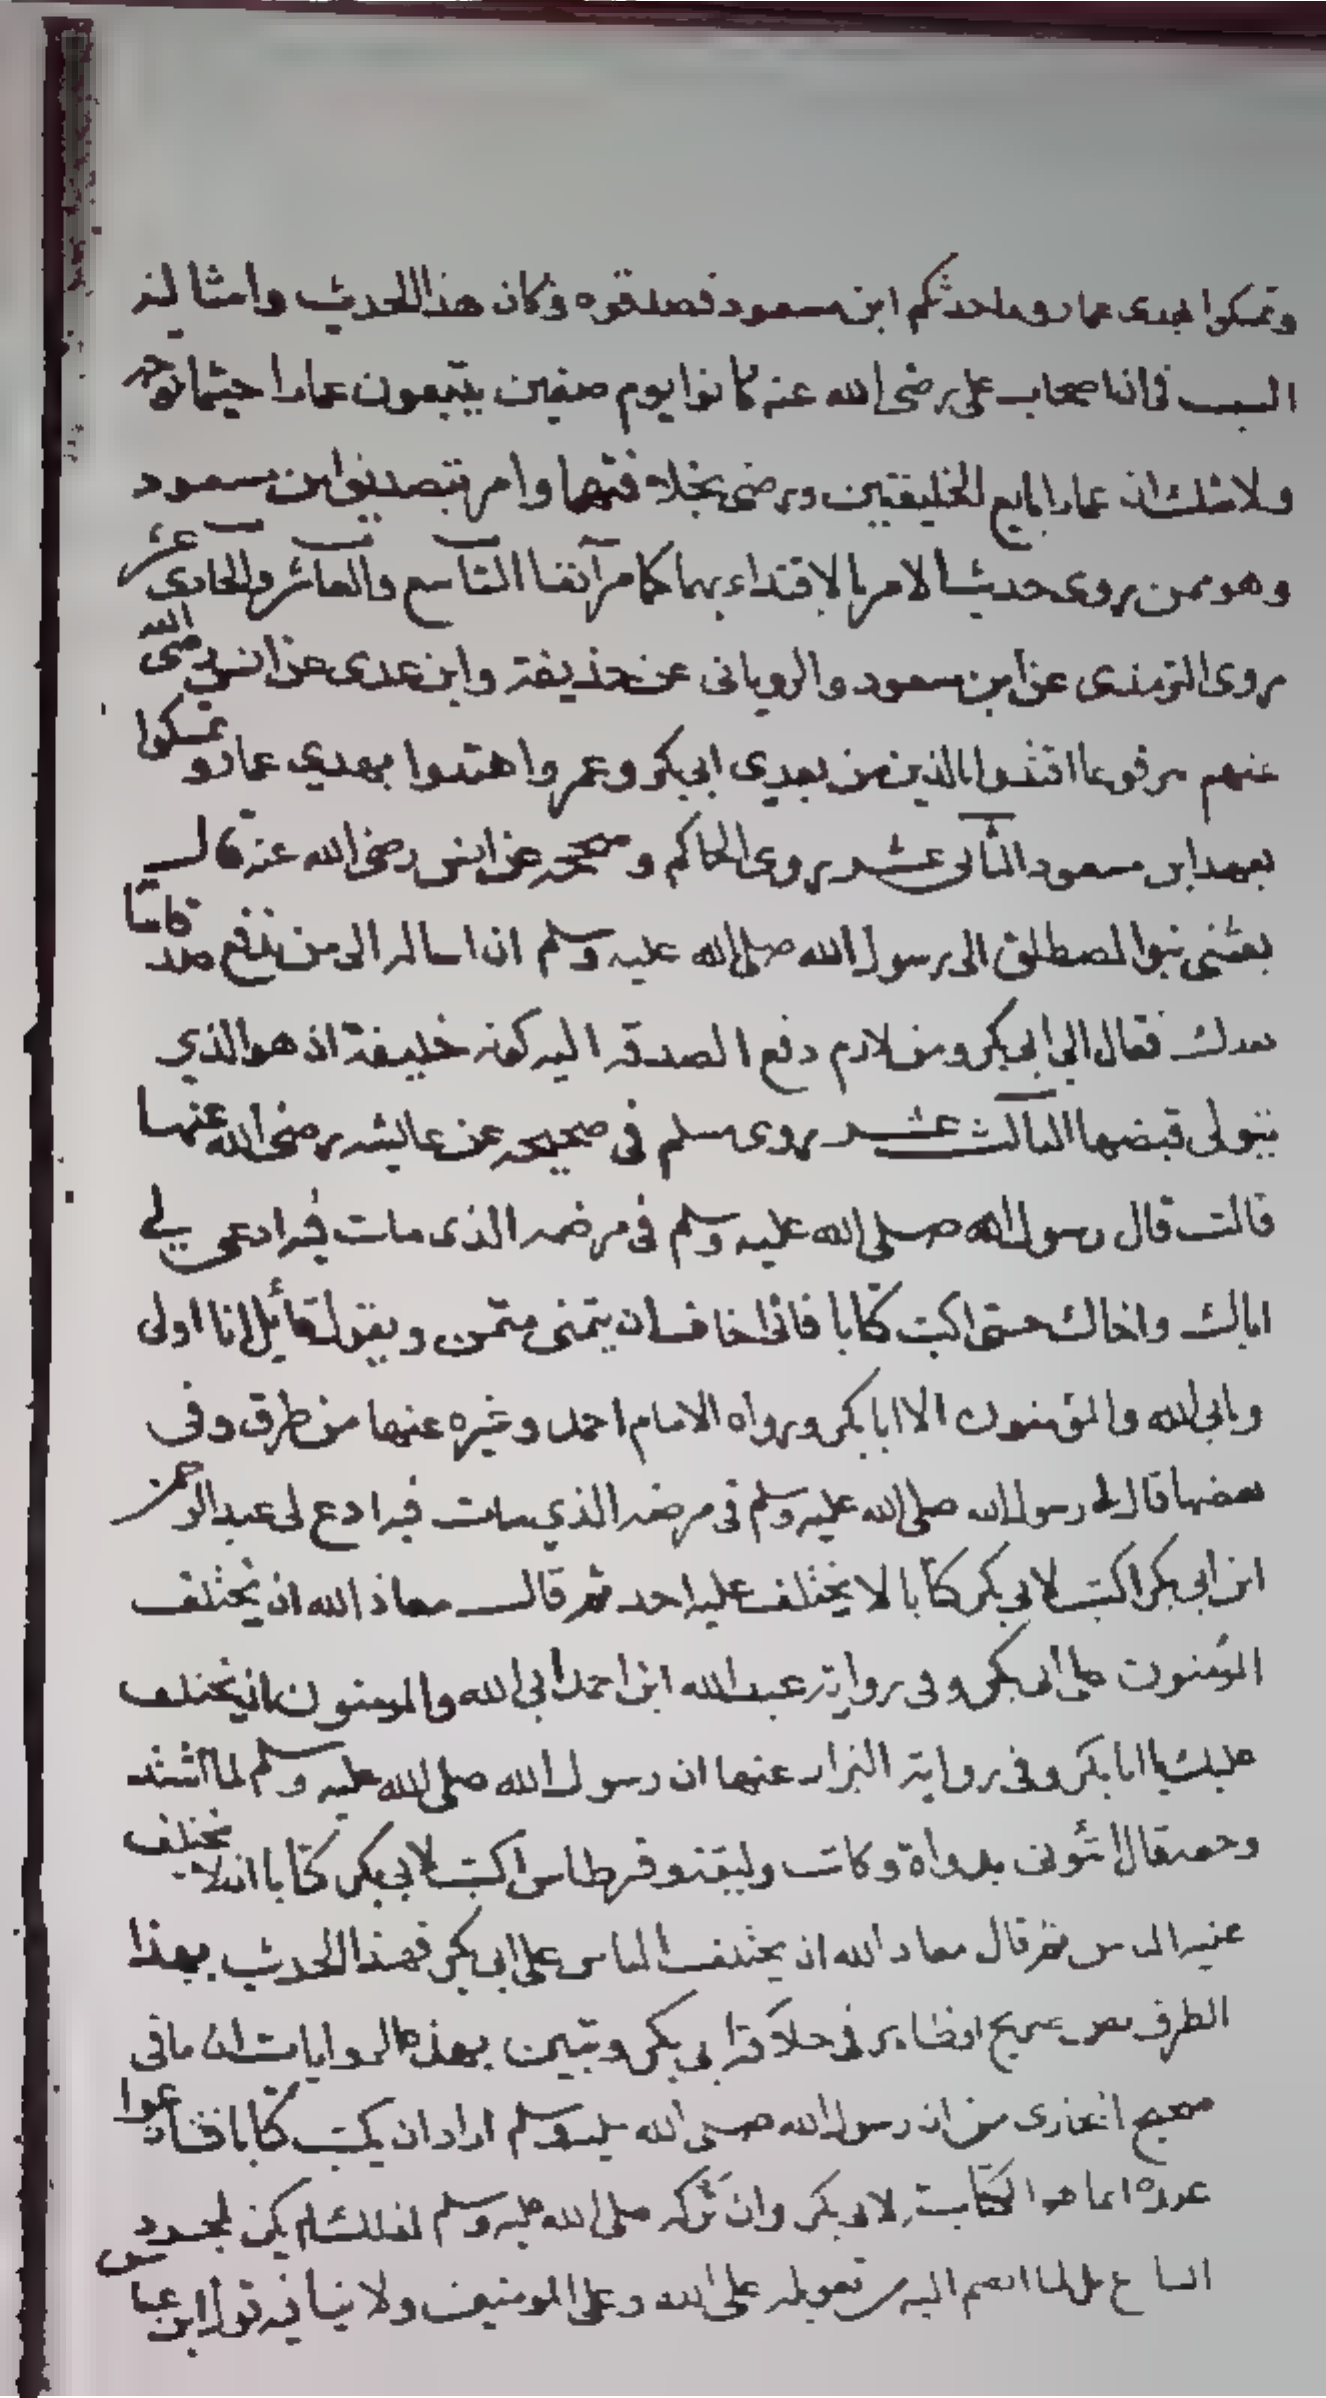 وتمسكوا بهدى عمار وما حدثكم ابن مسعود فصدقوه وكان هذا الحديث وامثاله
السبب فى ان اصحاب على رضى الله عنه كانوا يوم صفين يتبعون عمارا حيثما توجه
ولا شك ان عمارا بايع الخليفتين ورضى بخلافتهما وامر بتصديق ابن مسعود
وهو ممن روى حديث الامر بالاقتداء بهما كما مر آنفا التاسع والعاشر والحادى عشر
روى الترمذى عن ابن مسعود والرويانى عن حذيفة وابن عدى عن انس رضى الله
عنهم مرفوعا اقتدوا بالذين من بعدى ابى بكر وعمر واهتدوا بهدي عمار وتمسكوا
بعهد ابن مسعود الثانى عشر روى الحاكم وصححه عن انس رضى الله عنه قال
بعثنى بنوا المصطلق الى رسول الله صلى الله عليه وسلم ان اساله الى من ندفع صدقاتنا
بعدك فقال الى ابى بكر ومن لازم دفع الصدقه اليه كونه خليفة اذ هو الذي
يتولى قبضها الثالث عشر روى مسلم فى صحيحه عن عايشه رضى الله عنها
قالت قال رسول الله صلى الله عليه وسلم فى مرضه الذى مات فيه ادعى لي
اباك واخاك حتى اكتب كتابا فانى اخاف ان يتمنى متمن ويقول قائل انا اولى
ويابى الله والمؤمنون الا ابا بكر ورواه الامام احمد وغيره عنها من طرق وفى
بعضها قال لى رسول الله صلى الله عليه وسلم فى مرضه الذي مات فيه ادع لى عبد الرحمن
ابن ابى بكر اكتب لابى بكر كتابا لا يختلف عليه احد ثم قال معاذ الله ان يختلف
المؤمنون على ابى بكر وفى رواية عبد الله ابن احمد ابى الله والمومنون ان يختلف
عليك يا ابا بكر وفى رواية البزار عنها ان رسول الله صلى الله عليه وسلم لما اشتد
وجعه قال ائتونى بدواة وكاتب وقرطاس اكتب لابى بكر كتابا ان لا يختلف
عليه الناس ثم قال معاذ الله ان يختلف الناس على ابى بكر فهذا الحديث بهذا
الطرق نص صريح ظاهر فى خلافة ابى بكر وتبين بهذه الروايات ان ما فى
صحيح البخارى من ان رسول الله صلى الله عليه وسلم اراد ان يكتب كتابا فتنازعوا
عنده انما هو الكتابة لابى بكر وان تركه صلى الله عليه وسلم لذلك لم يكن لمجرد
التنازع بل لما انضم اليه من تعويله على الله وعلى المومنين ولا ينافيه قول ابن عباس